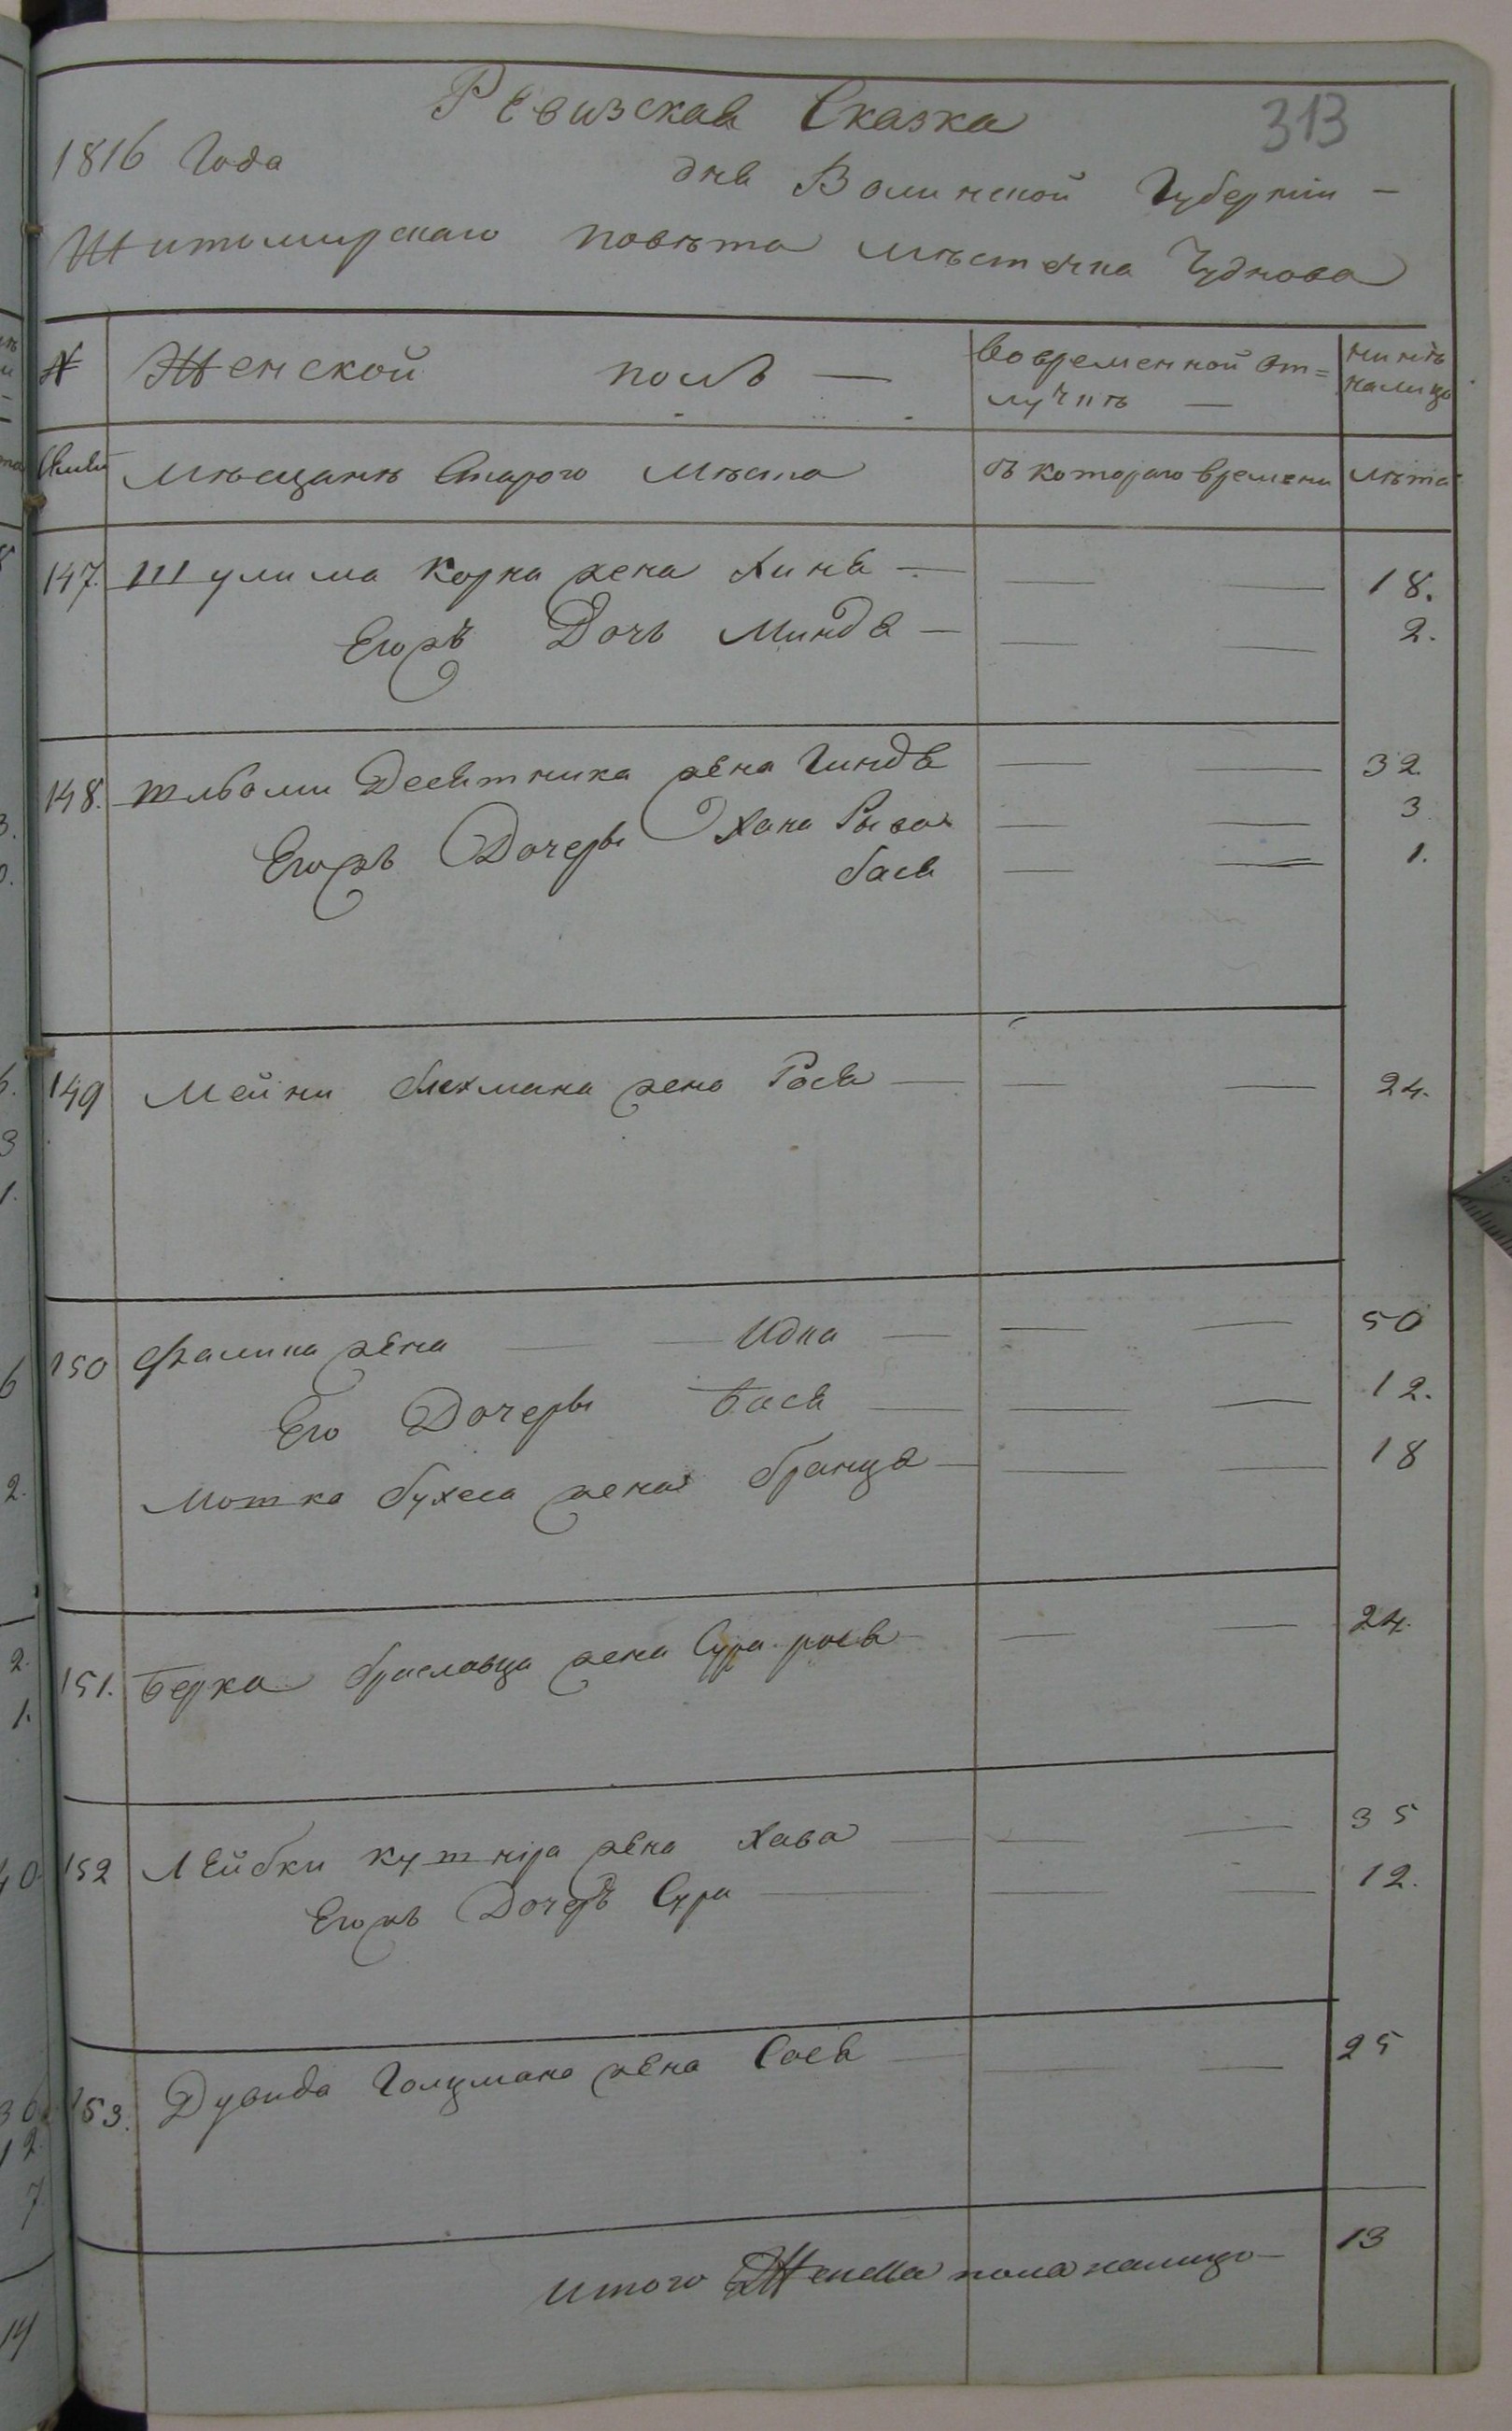 313
Ревизская Сказка
1816 Года дня Волинской Губернии —
Житомирскаго повѣта мѣстечка Чуднова
№ Женской полъ — Во временной от=лучиѣ — нинѣ налицо
Мѣщанѣ Старого Мѣста съ котораго времени лѣта
147. Шулима Корна жена Хиня — — — 18.
Егожъ Дочь Миндя — — — 2.
148. жена Гиндя — — 32
Егожъ Дочеры Хана Рыва — — 3
бася — — 1.
149 Мейни жена Рося — — — 24.
150 Фалика жена — — Идка — — — 50
Его Дочеры Бася — — — 12.
Мотка бухеса жена бранця — — — 18
151. Берка браславца жена Сура рося — — 24.
152 Лейбки кутнира жена Хава — — — 35
Егожъ Дочеръ Сура — — — 12.
153. Дувида Голцмана жена Сося — — — 25
итого Женска пола налицо — 13
3.
0.
6.
3
1.
6
2.
2.
1.
40.
30
12.
7
14